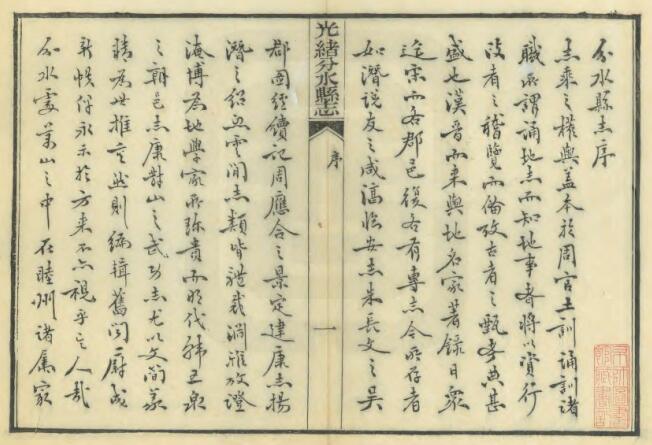 分水縣志序
志乘之權輿蓋本於周官土訓誦訓諸
職所謂誦地志而知地事者將以資行
政者之稽覽而備攷古者之甄考典甚
盛也漢晉而來輿地名家著錄日衆
迄宋而各郡邑復各有專志今所存者
如潛說友之咸淳臨安志朱長文之吳
光緒分水縣志
序
一
郡圖經續記周應合之景定建康志楊
潛之紹熙雲間志類皆體裁淵雅攷證
淹博為地學家所珍貴而明代韓五泉
之朝邑志康對山之武功志尤以文簡義
精為世推重然則編輯舊聞蔚成
新帙俾永示於方來不亦視乎其人哉
分水處萬山之中在睦州諸屬